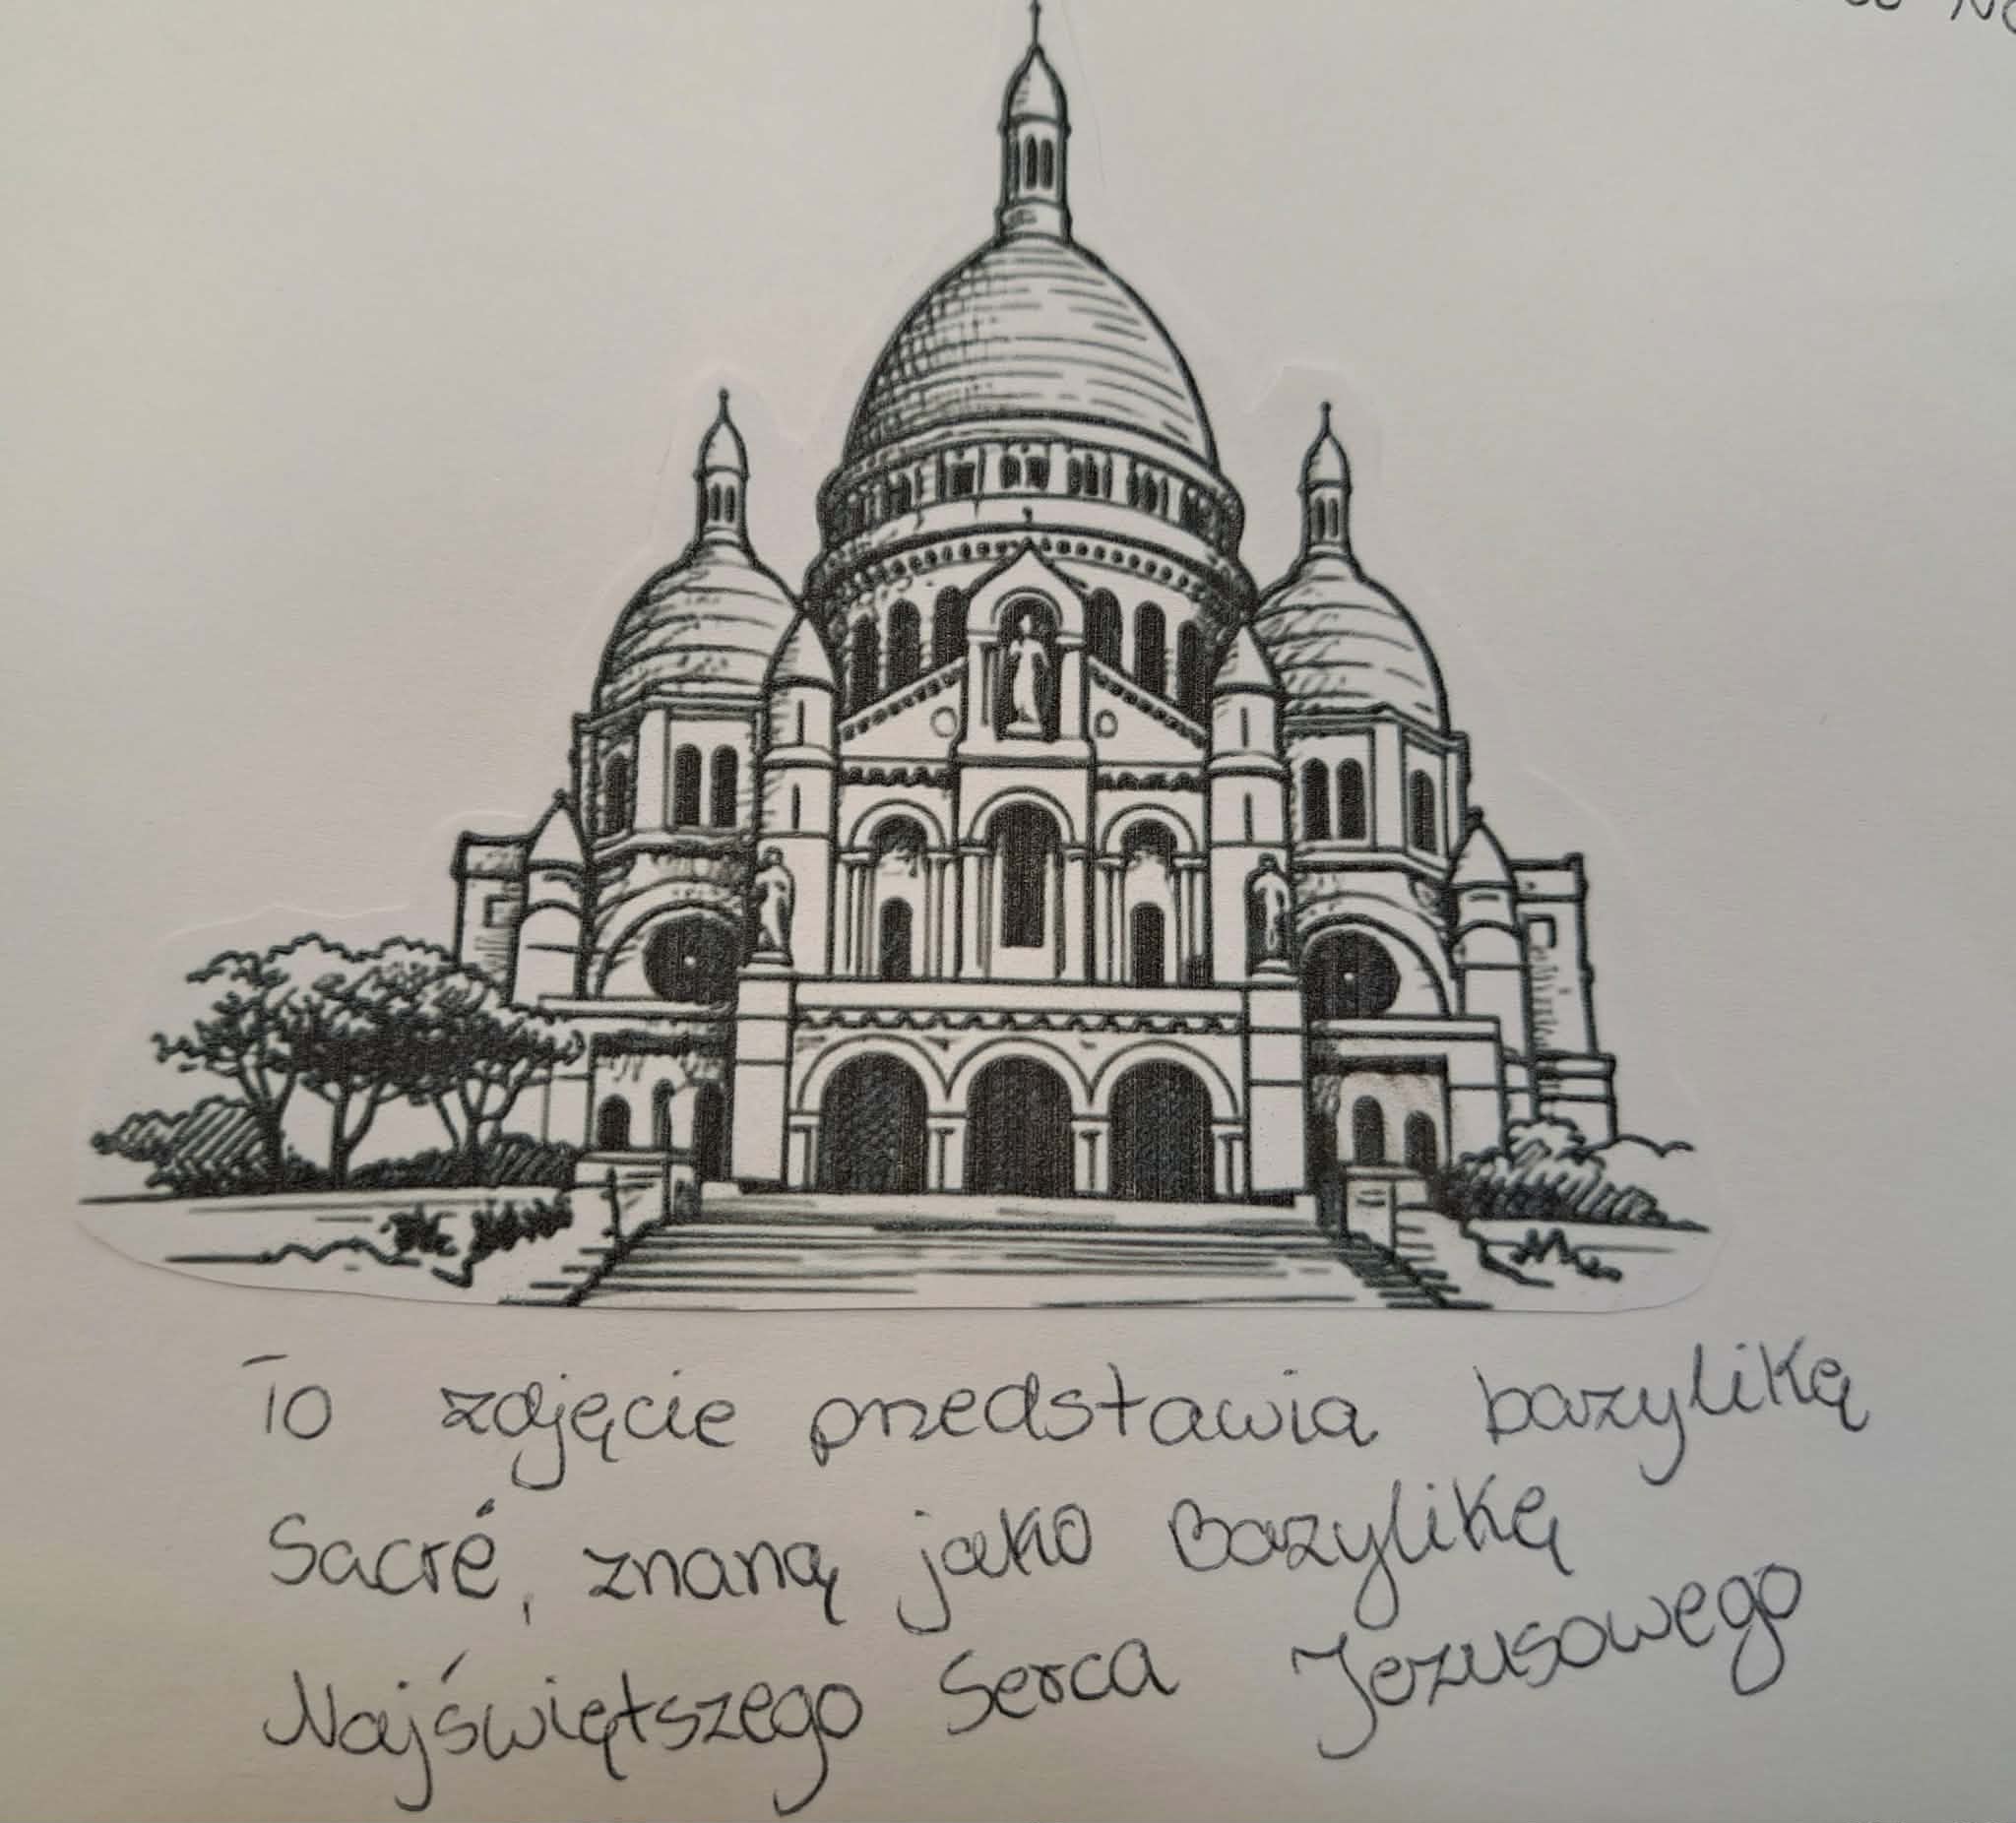 To zdjęcie przedstawia bazylikę
Sacré, znaną jako Bazylikę
Najświętszego Serca Jezusowego